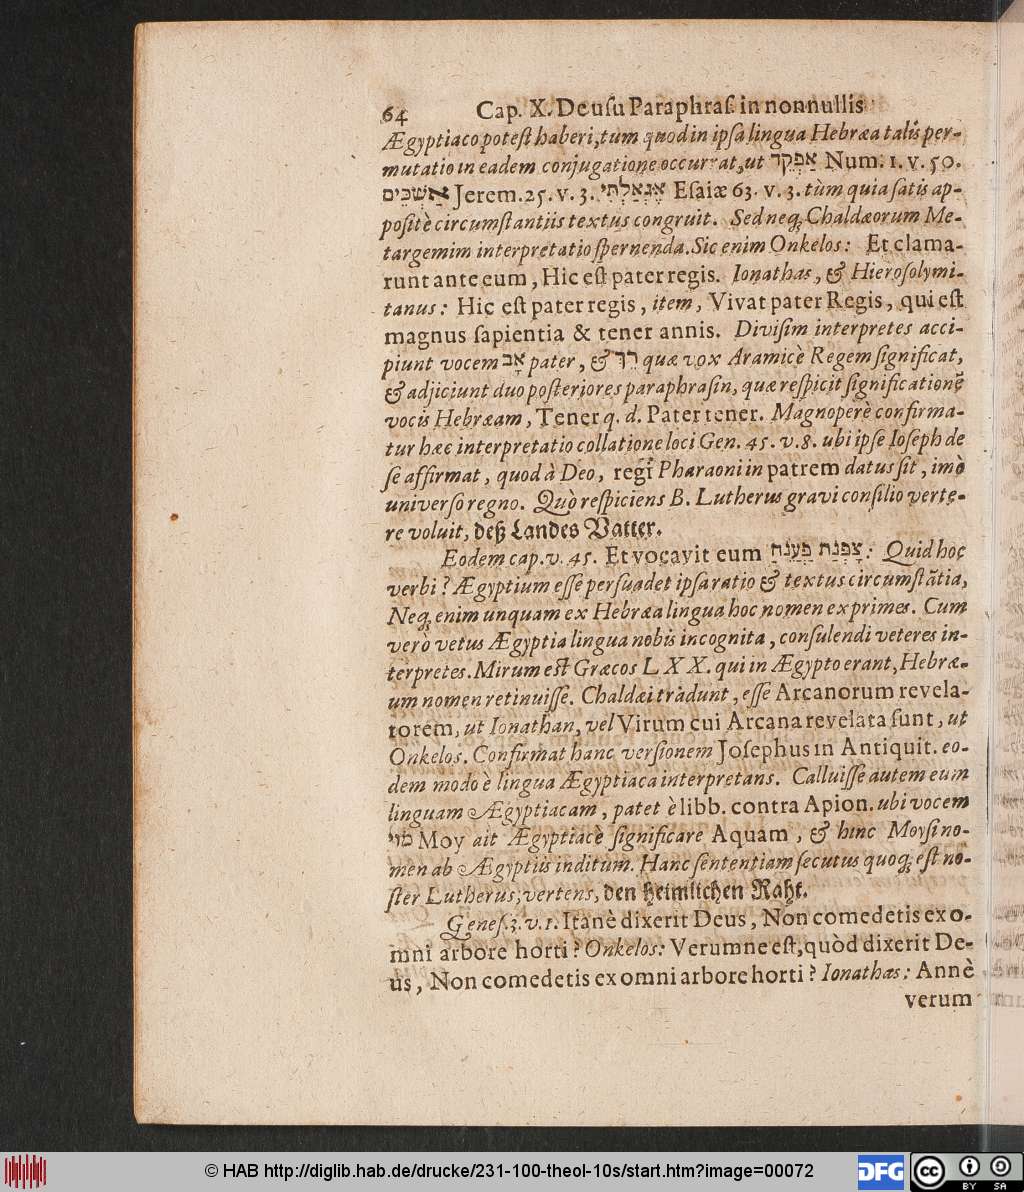 64 Cap. X. De uſu Paraphraſ. in nonnullis
Ægyptiaco poteſt haberi, tùm quod in ipſa lingua Hebræa talis per-
mutatio in eadem conjugatione occurrat, ut אַפְקֵר Num. 1. v. 50.
אַשְׁכֵּים Jerem. 25. v. 3. אֶגְאַלְתִּי Eſaiæ 63. v. 3. tùm quia ſatis ap-
poſitè circumſtantiis textus congruit. Sed neq; Chaldæorum Me-
targemim interpretatio ſpernenda. Sic enim Onkelos: Et clama-
runt ante eum, Hic eſt pater regis. Ionathas, & Hieroſolymi-
tanus: Hic eſt pater regis, item, Vivat pater Regis, qui eſt
magnus ſapientia & tener annis. Diviſim interpretes acci-
piunt vocem אָב pater, & רֵךְ quæ vox Aramicè Regem ſignificat,
& adjiciunt duo poſteriores paraphraſin, quæ reſpicit ſignificationẽ
vocis Hebræam, Tener q. d. Pater tener. Magnoperè confirma-
tur hæc interpretatio collatione loci Gen. 45. v. 8. ubi ipſe Ioſeph de
ſe affirmat, quod à Deo, regĩ Pharaoni in patrem datus ſit, imò
univerſo regno. Quò reſpiciens B. Lutherus gravi conſilio verte-
re voluit, deß Landes Vatter.
Eodem cap. v. 45. Et vocavit eum צָפְנַת פַּעְנֵחַ: Quid hoc
verbi? Ægyptium eſſe perſuadet ipſa ratio & textus circumſtãtia,
Neq; enim unquam ex Hebræa lingua hoc nomen exprimes. Cum
verò vetus Ægyptia lingua nobis incognita, conſulendi veteres in-
terpretes. Mirum eſt Græcos LXX. qui in Ægypto erant, Hebræ-
um nomen retinuiſſe. Chaldæi tradunt, eſſe Arcanorum revela-
torem, ut Ionathan, vel Virum cui Arcana revelata ſunt, ut
Onkelos. Confirmat hanc verſionem Joſephus in Antiquit. eo-
dem modo è lingua Ægyptiaca interpretans. Calluiſſe autem eum
linguam Ægyptiacam, patet è libb. contra Apion. ubi vocem
מוי Moy ait Ægyptiacè ſignificare Aquam, & hinc Moyſi no-
men ab Ægyptiis inditum. Hanc ſententiam ſecutus quoq; eſt no-
ſter Lutherus, vertens, den heimlichen Raht.
Geneſ. 3. v. 1. Itanè dixerit Deus, Non comedetis ex o-
mni arbore horti? Onkelos: Verumne eſt, quòd dixerit De-
us, Non comedetis ex omni arbore horti? Ionathas: Annè
verum
© HAB http://diglib.hab.de/drucke/231-100-theol-10s/start.htm?image=00072
DFG
cc BY SA